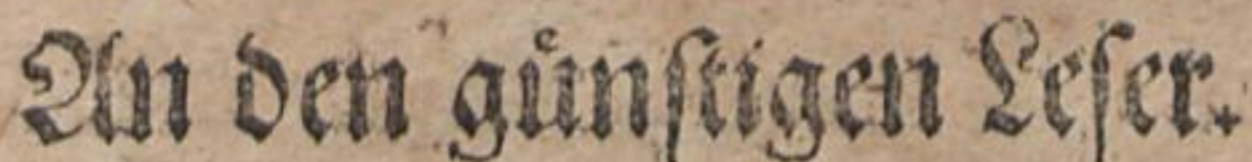 An den guͤnſtigen Leſer.